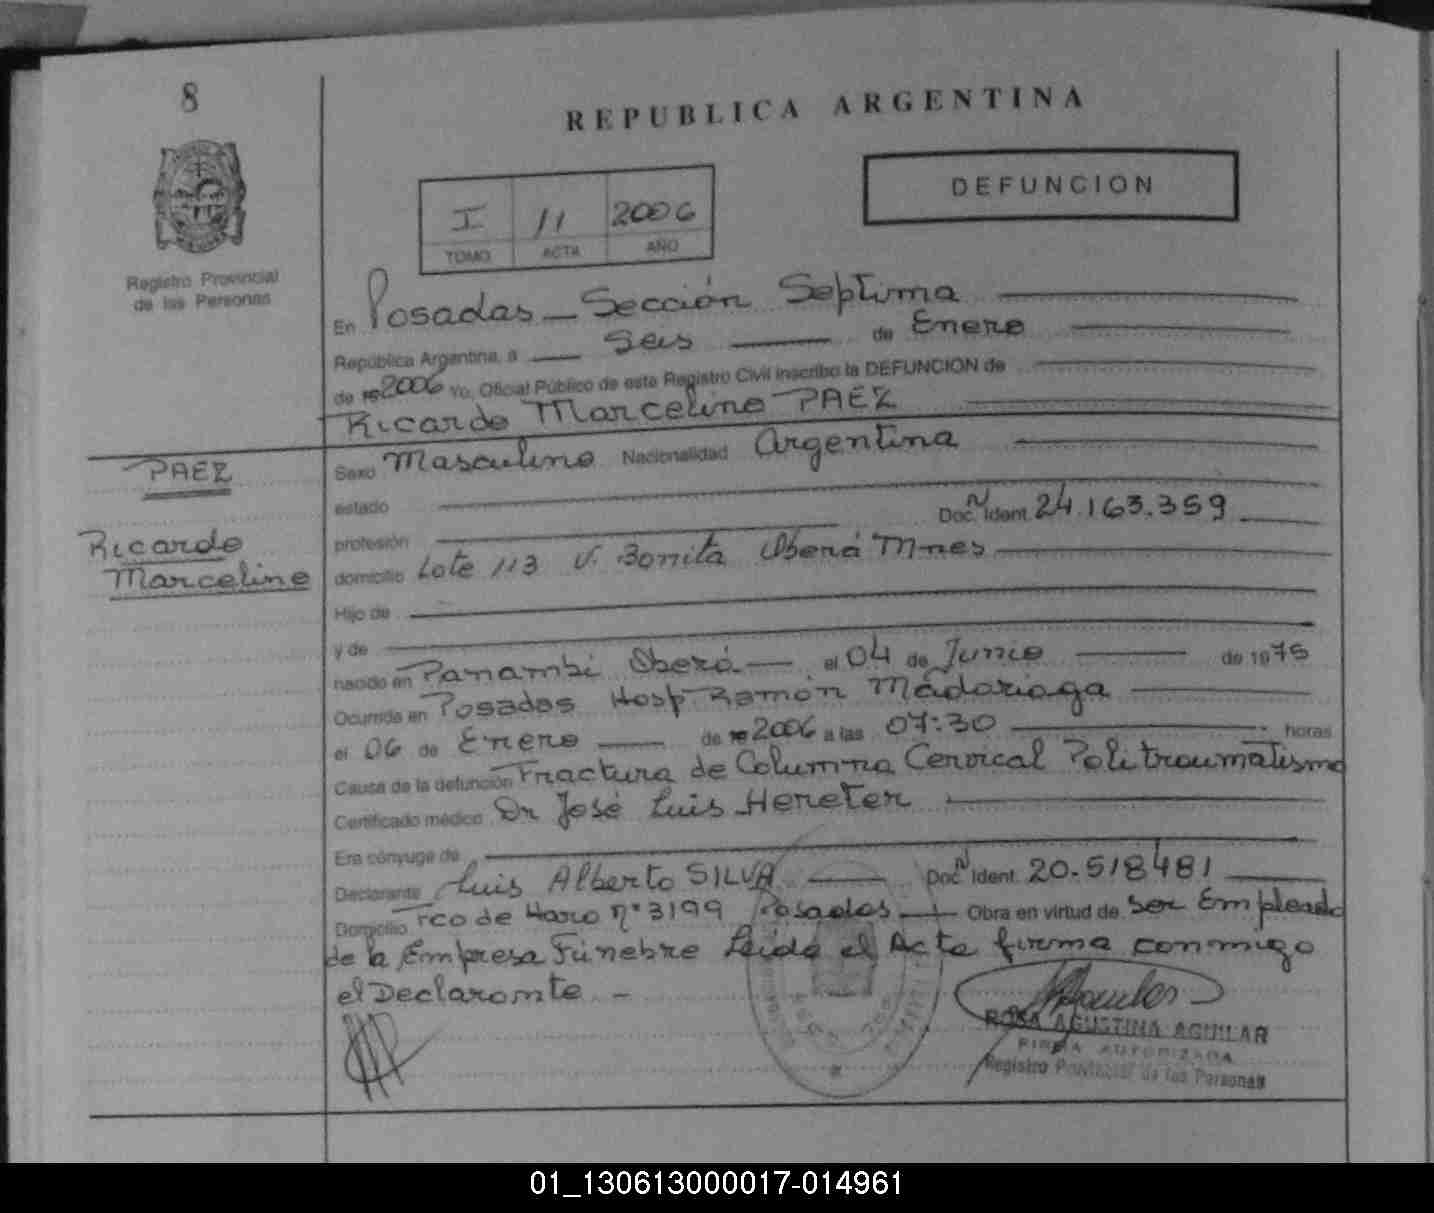 8
REPUBLICA ARGENTINA
DEFUNCION
I 11 2006
TOMO ACTA AÑO
Registro Provincial
de las Personas
En Posadas - Sección Septima
República Argentina, a Seis de Enero
de 2006 Yo, Oficial Público de este Registro Civil inscribo la DEFUNCION de
Ricardo Marcelino PAEZ
PAEZ
Ricardo
Marcelino
Sexo Masculino Nacionalidad Argentina
estado
Doc. N Ident. 24.163.359
profesión
domicilio Lote 113 V. Bonita Oberá M-nes
Hijo de
y de
nacido en Panambí Oberá el 04 de Junio de 1975
Ocurrida en Posados Hosp Ramón Madariaga
el 06 de Enero de 2006 a las 07:30 horas
Causa de la defunción Fractura de Columna Cervical Politraumatismo
Certificado médico Dr José Luis Hereter
Era cónyuge de
Declarante Luis Alberto SILVA Doc. N Ident. 20.518481
Domicilio Fco de Haro nº 3199 Posadas Obra en virtud de Ser Empleado
de la Empresa Fúnebre Leida el Acta firma conmigo
el Declarante -
ROSA AGUSTINA AGUILAR
FIRMA AUTORIZADA
Registro Provincial de las Personas
01_130613000017-014961